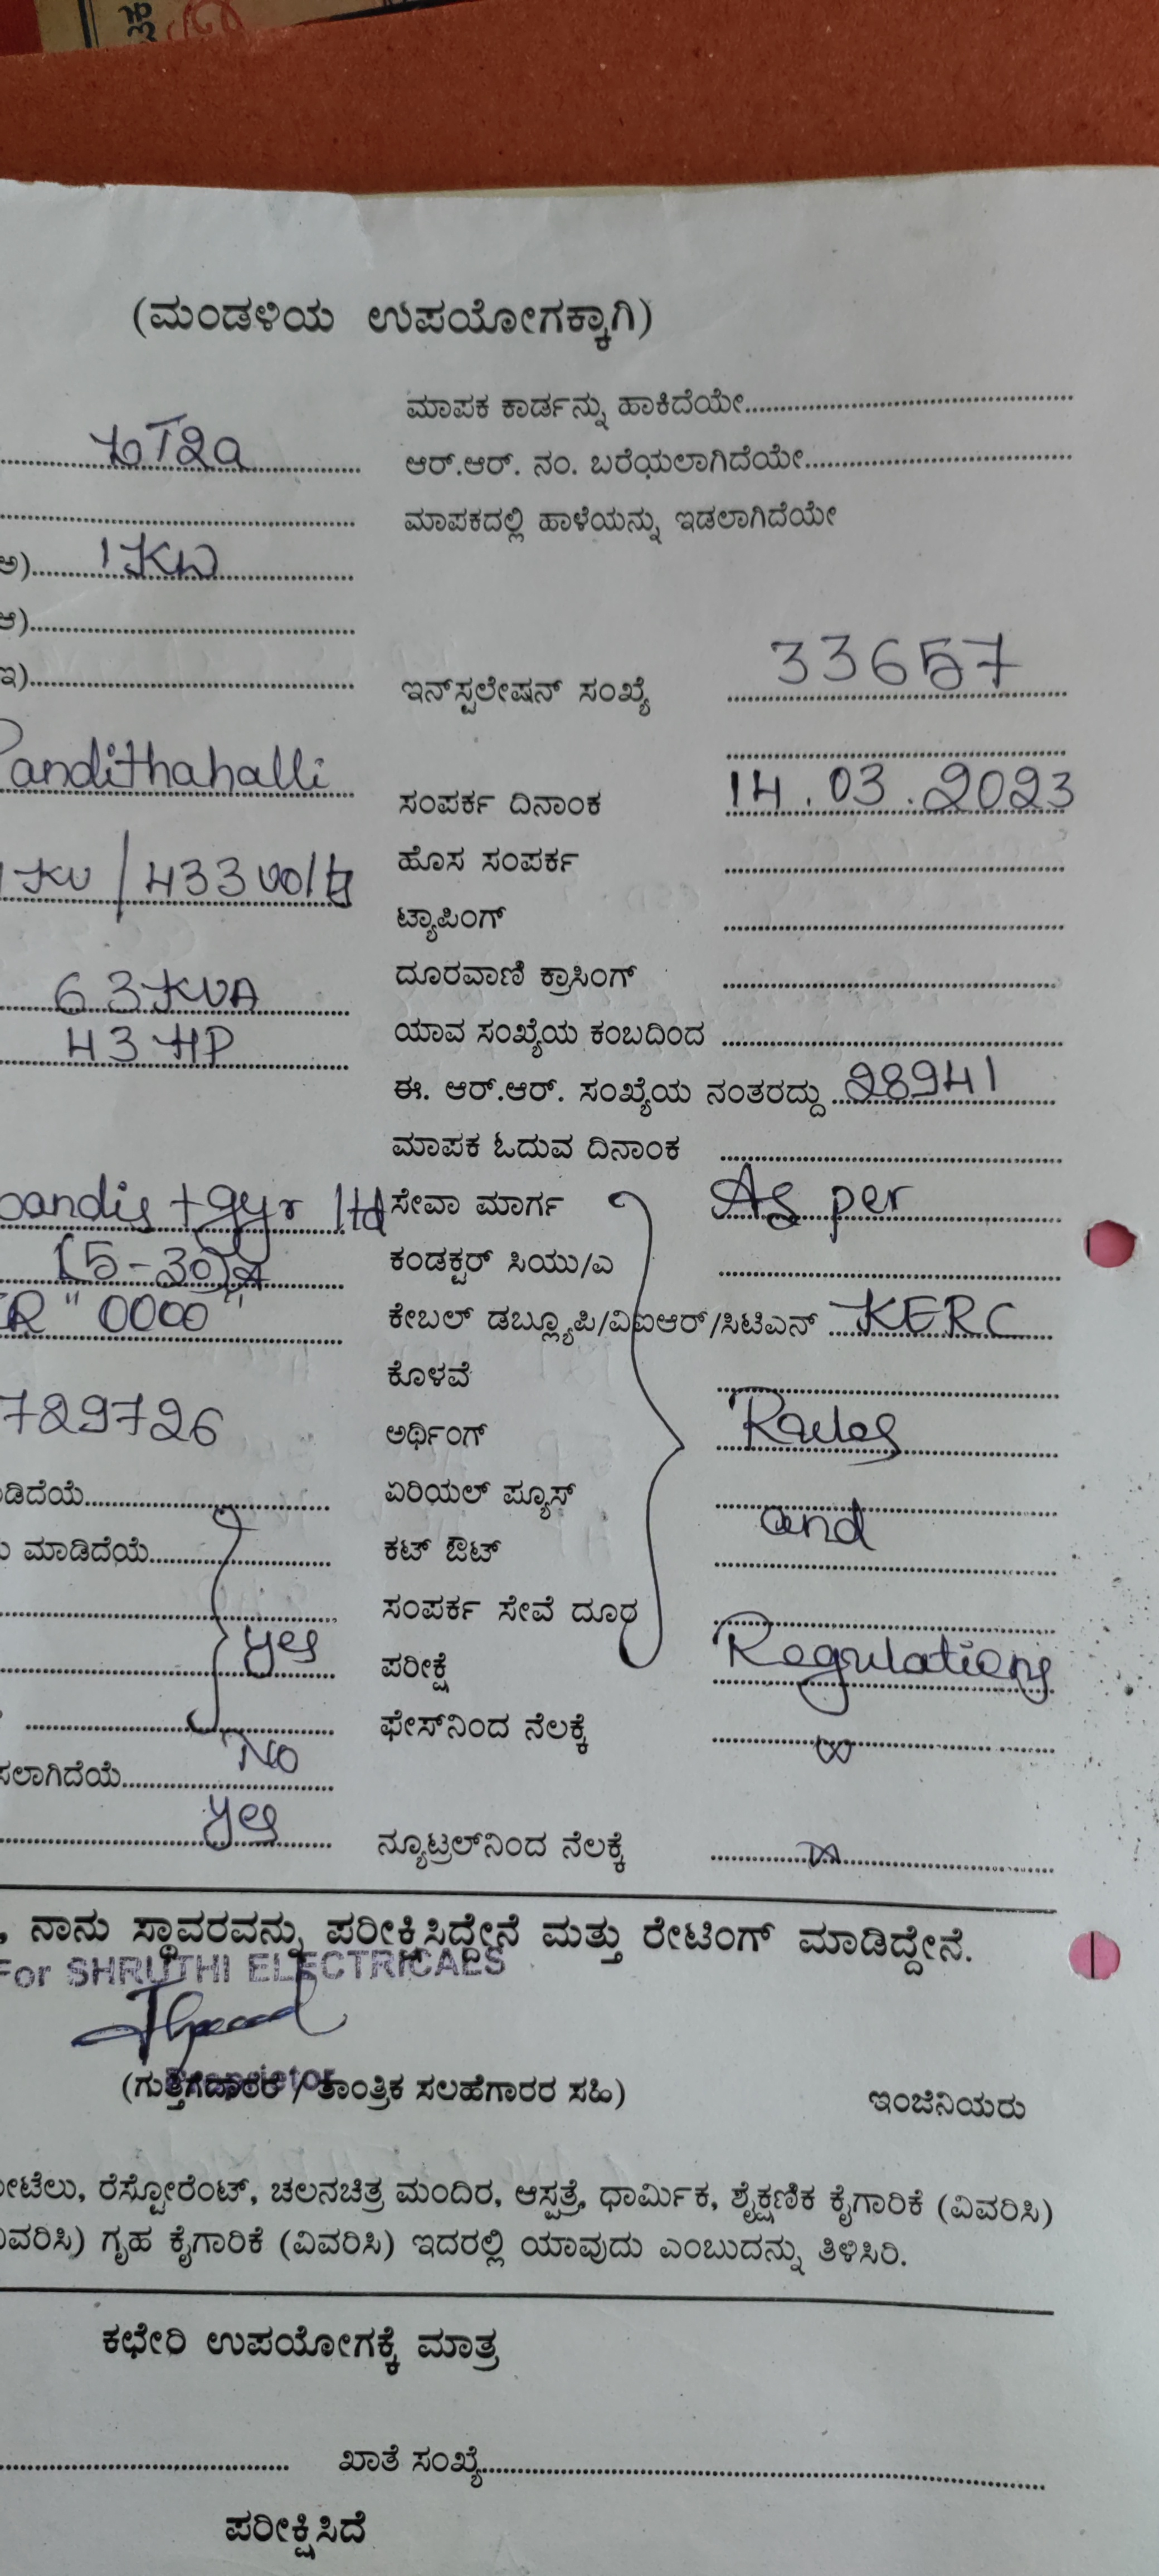 (ಮಂಡಳಿಯ ಉಪಯೋಗಕ್ಕಾಗಿ)
ಮಾಪಕ ಕಾರ್ಡನ್ನು ಹಾಕಿದೆಯೇ
LT2a ಆರ್.ಆರ್. ನಂ. ಬರೆಯಲಾಗಿದೆಯೇ
ಮಾಪಕದಲ್ಲಿ ಹಾಳೆಯನ್ನು ಇಡಲಾಗಿದೆಯೇ
ಅ) 1KW
ಆ)
ಇ) ಇನ್‌ಸ್ಟಲೇಷನ್ ಸಂಖ್ಯೆ 33657
Pandithahalli ಸಂಪರ್ಕ ದಿನಾಂಕ 14.03.2023
KV / 433 volts ಹೊಸ ಸಂಪರ್ಕ
ಟ್ಯಾಪಿಂಗ್
63KVA ದೂರವಾಣಿ ಕ್ರಾಸಿಂಗ್
43 HP ಯಾವ ಸಂಖ್ಯೆಯ ಕಂಬದಿಂದ
ಈ. ಆರ್.ಆರ್. ಸಂಖ್ಯೆಯ ನಂತರದ್ದು 28941
ಮಾಪಕ ಓದುವ ದಿನಾಂಕ
Landis + gyr ltd ಸೇವಾ ಮಾರ್ಗ As per
(5-30)A ಕಂಡಕ್ಟರ್ ಸಿಯು/ಎ
R "0000" ಕೇಬಲ್ ಡಬ್ಲ್ಯೂಪಿ/ವಿಐಆರ್/ಸಿಟಿಎನ್ KERC
ಕೊಳವೆ
729726 ಅರ್ಥಿಂಗ್ Rules
ಡಿದೆಯೆ ಏರಿಯಲ್ ಪ್ಯೂಸ್ and
ಮಾಡಿದೆಯೆ ಕಟ್ ಔಟ್
ಸಂಪರ್ಕ ಸೇವೆ ದೂರ
yes ಪರೀಕ್ಷೆ Regulations
ಫೇಸ್‌ನಿಂದ ನೆಲಕ್ಕೆ ∞
ಸಲಾಗಿದೆಯೆ No
yes ನ್ಯೂಟ್ರಲ್‌ನಿಂದ ನೆಲಕ್ಕೆ
, ನಾನು ಸ್ಥಾವರವನ್ನು ಪರೀಕ್ಷಿಸಿದ್ದೇನೆ ಮತ್ತು ರೇಟಿಂಗ್ ಮಾಡಿದ್ದೇನೆ.
For SHRUTHI ELECTRICALS
Proprietor
(ಗುತ್ತಿಗೆದಾರರ / ತಾಂತ್ರಿಕ ಸಲಹೆಗಾರರ ಸಹಿ) ಇಂಜಿನಿಯರು
ೋಟೆಲು, ರೆಸ್ಟೋರೆಂಟ್, ಚಲನಚಿತ್ರ ಮಂದಿರ, ಆಸ್ಪತ್ರೆ, ಧಾರ್ಮಿಕ, ಶೈಕ್ಷಣಿಕ ಕೈಗಾರಿಕೆ (ವಿವರಿಸಿ)
ವಿವರಿಸಿ) ಗೃಹ ಕೈಗಾರಿಕೆ (ವಿವರಿಸಿ) ಇದರಲ್ಲಿ ಯಾವುದು ಎಂಬುದನ್ನು ತಿಳಿಸಿರಿ.
ಕಛೇರಿ ಉಪಯೋಗಕ್ಕೆ ಮಾತ್ರ
ಖಾತೆ ಸಂಖ್ಯೆ
ಪರೀಕ್ಷಿಸಿದೆ